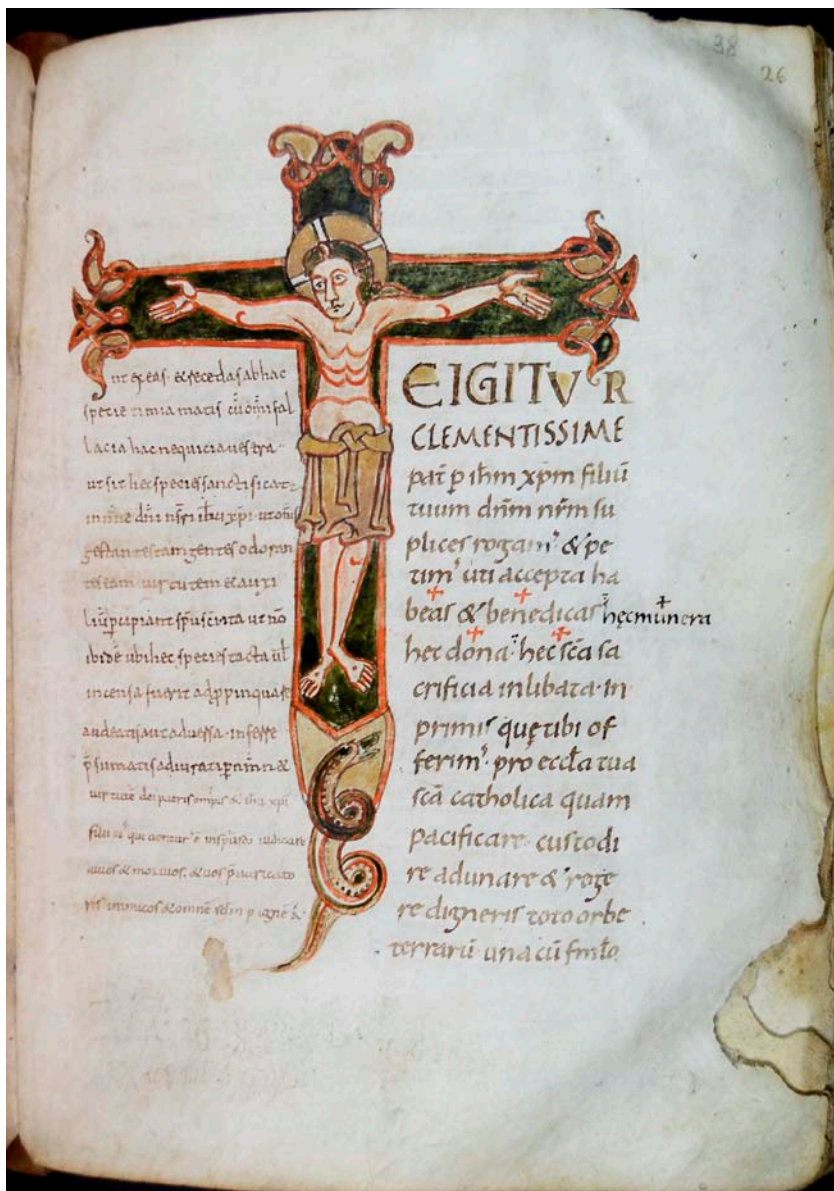 38
26
ut exeas · & recedas ab hac
specie timiamatis cū om̄i fal
lacia hac nequicia vestra ·
ut sit hec species sanctificata
in nn̄e dn̄i nr̄i ih̄u xp̄i · ut om̄s
gestantes tangentes odoran
tes eam · uirtutem & auxi
liū p̄cipiant sp̄us
ibidē ubi hec species tacta ul̄
incensa fuerit adp̄pinquare
audeatis aut aduersa · inferre
p̄sumatis adiurati p nm̄n &
uirtutē dei patris omp̄is & ih̄u xp̄i
filii ei' qui uentur' ē in sp̄u sc̄o iudicare
uiuos & mortuos. & uos p̄uaricato
ris inimicos & omnē sc̄lm p ignē
TEIGITVR
CLEMENTISSIME
pat̄ p ih̄m xp̄m filiū
tuum dn̄m nr̄m su
plices rogam' & pe
tim' uti accepta ha
beas & benedicas hęc munera
hec dona · hec sc̄a sa
crificia inlibata · in
primis quę tibi of
ferim' · pro eccl̄a tua
sc̄a catholica quam
pacificare · custodi
re adunare & rege
re digneris toto orbe
terrarū · una cū fml̄o